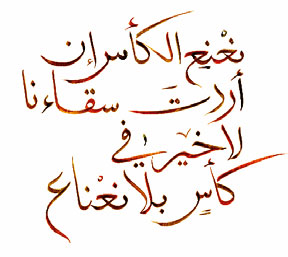 نعْنِع الكأس إن
أردتَ سقاءنا
لا خيرَ في
كأسٍ بلا نعْناع